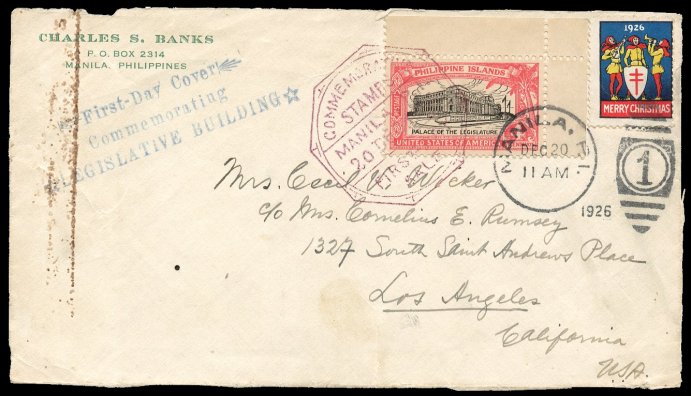 CHARLES S. BANKS
P. O. BOX 2314
MANILA, PHILIPPINES
First-Day Cover
Commemorating
LEGISLATIVE BUILDING
STAMP
MANILA
20
FIRST
PHILIPPINE ISLANDS
PALACE OF THE LEGISLATURE
UNITED STATES OF AMERICA
1926
MERRY CHRISTMAS
MANILA, P.I.
DEC 20
11 AM
1926
1
Mrs. Cecil V.
c/o Mrs. Cornelius E. Rumsey
1327 South Saint Andrews Place
Los Angeles
California
USA.